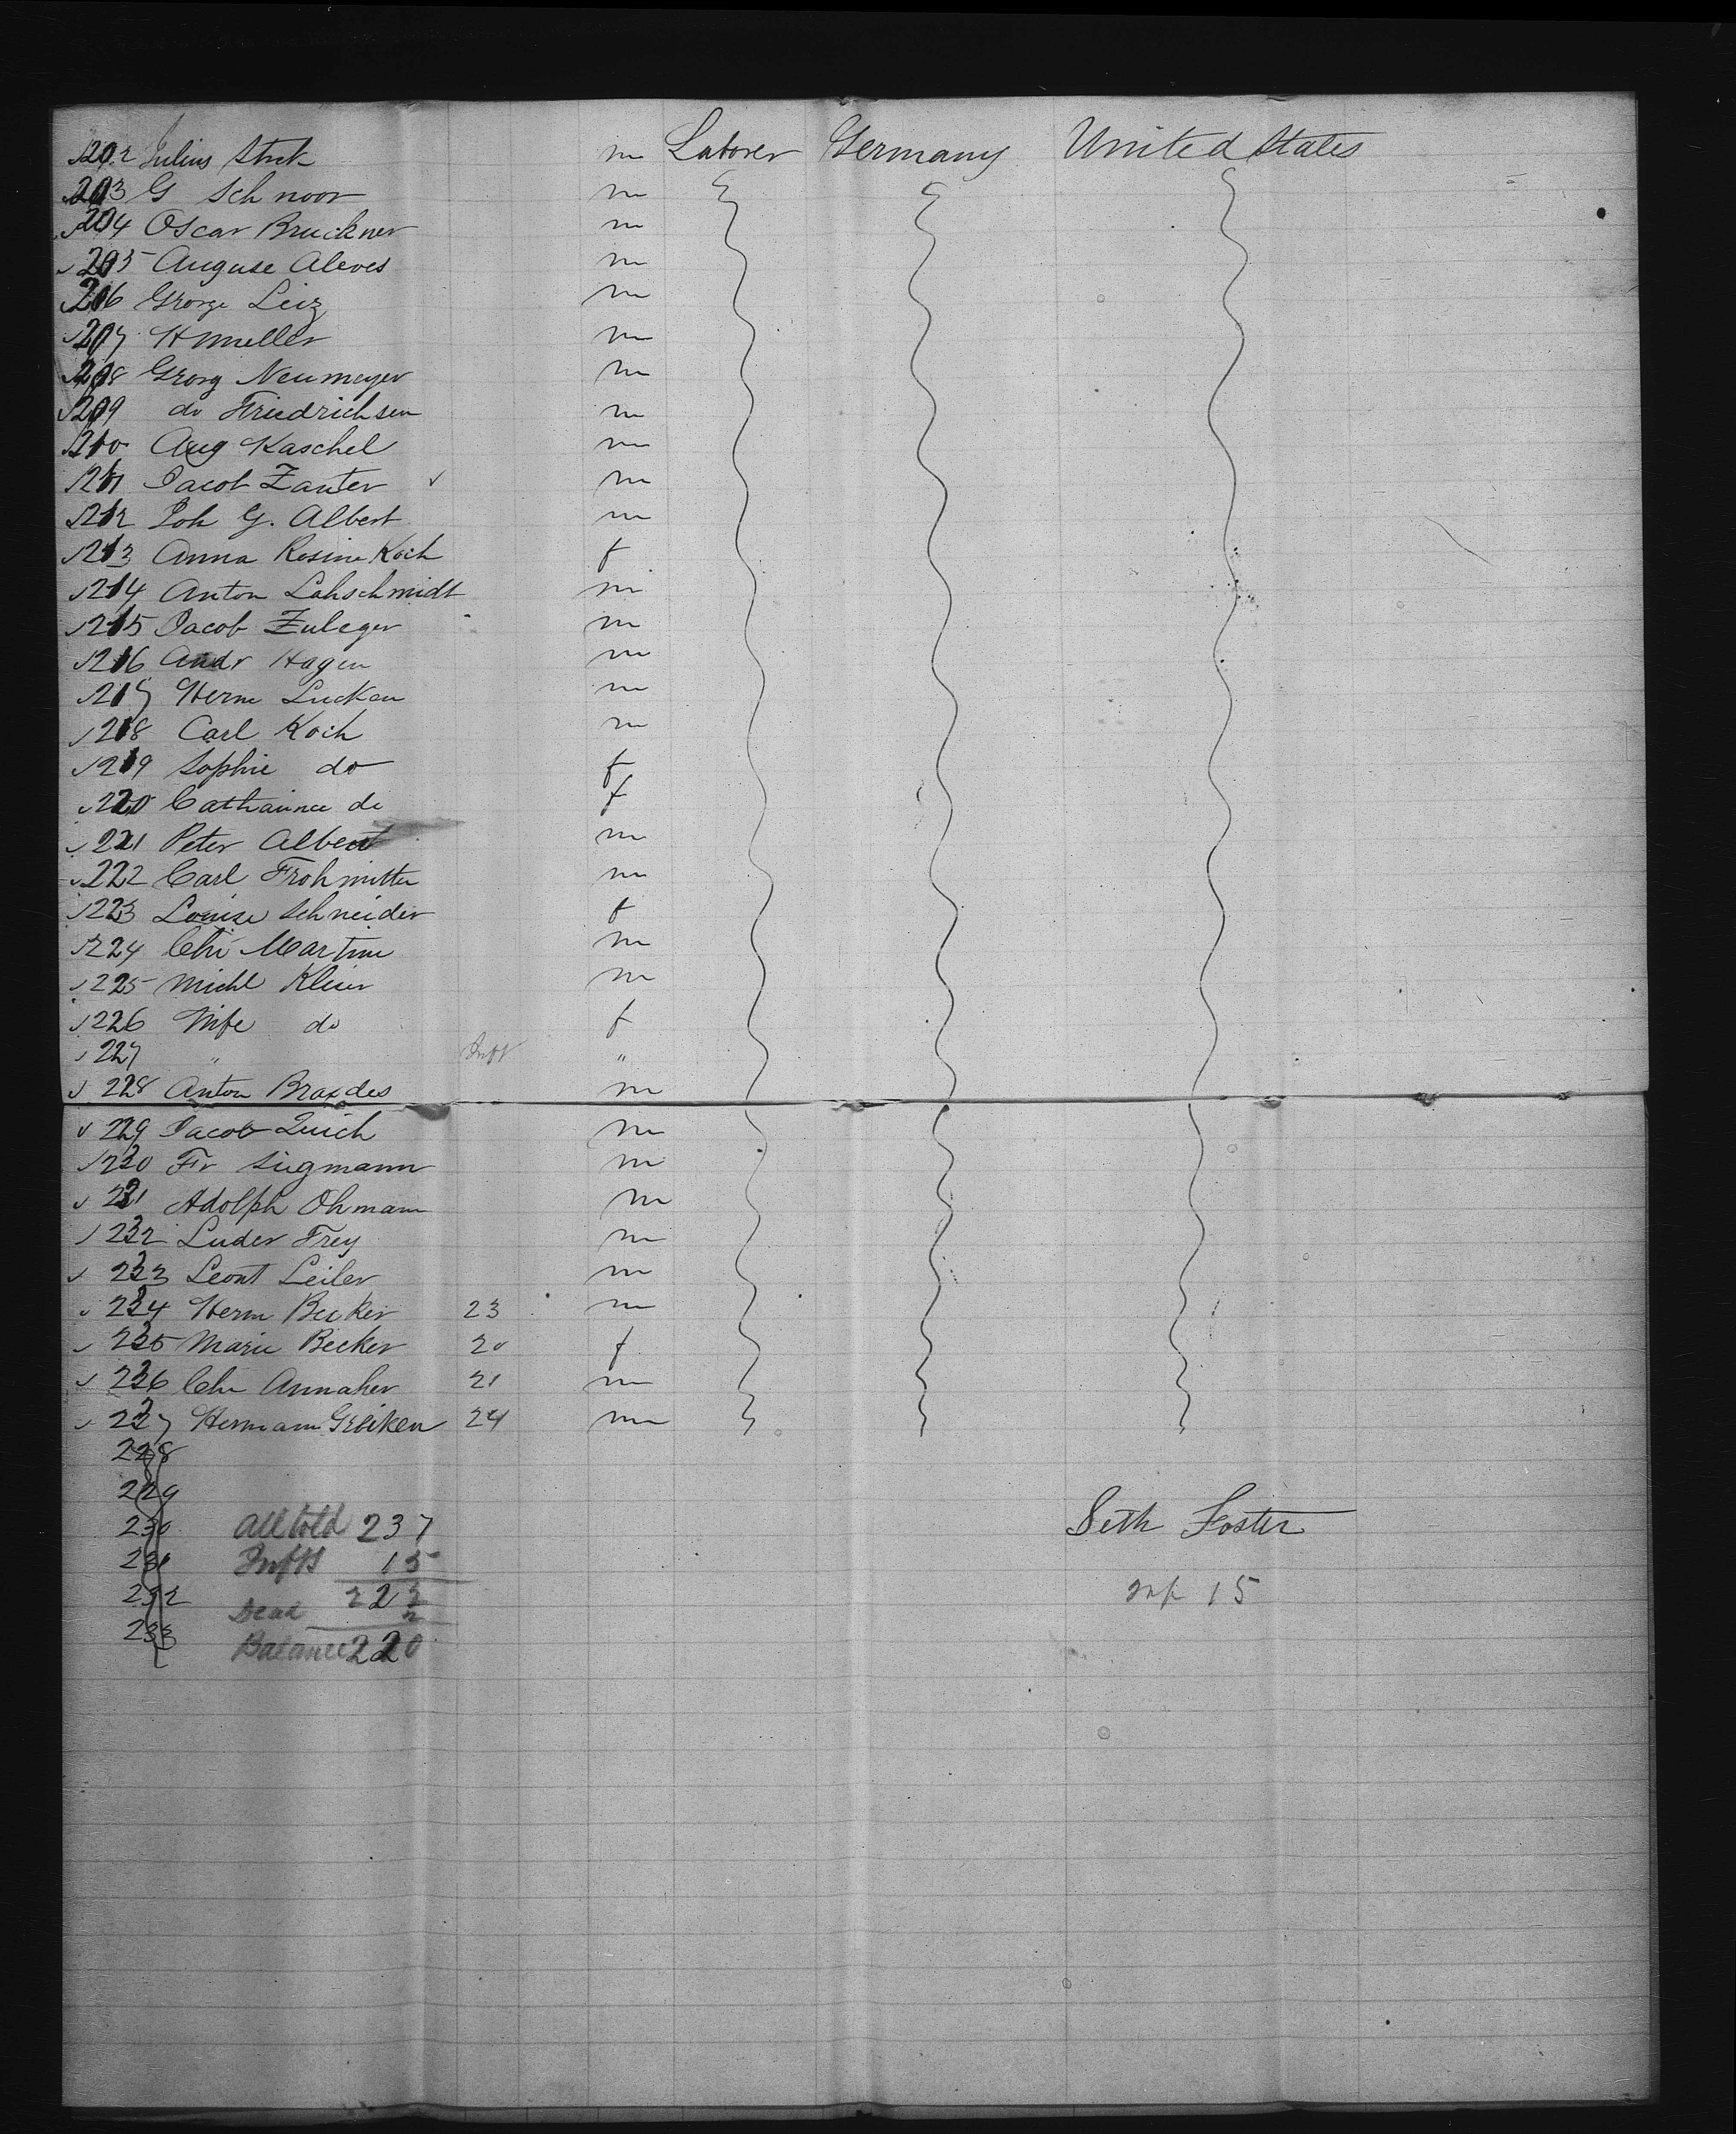 202 Julius Stuk m Laborer Germany United States
203 G Schnoor m
204 Oscar Bruckner m
205 Auguse Aleves m
206 George Leiz m
207 H Muller m
208 Georg Neumeyer m
209 do Friedrichsen m
210 Aug Kaschel m
211 Jacob Zanter m
212 Joh G. Albert m
213 Anna Rosine Koch f
214 Anton Lohschmidt m
215 Jacob Zuleger m
216 Andr Hagen m
217 Herm Luckau m
218 Carl Koch m
219 Sophie do f
220 Catharina do f
221 Peter Albert m
222 Carl Frohmitter m
223 Louise Schneider f
224 Chr Martin m
225 Michl Klein m
226 Wife do f
227 " Inft "
228 Anton Brandes m
229 Jacob Quich m
230 Fr Siegmann m
231 Adolph Ohmann m
232 Luder Frey m
233 Leont Leiler m
234 Herm Becker 23 m
235 Marie Becker 20 f
236 Chr Annaker 21 m
237 Hermann Gerken 24 m
228
229
230 All told 237 Seth Foster
231 Infts 15
232 222 inf 15
233 Dead 2
Balance 220